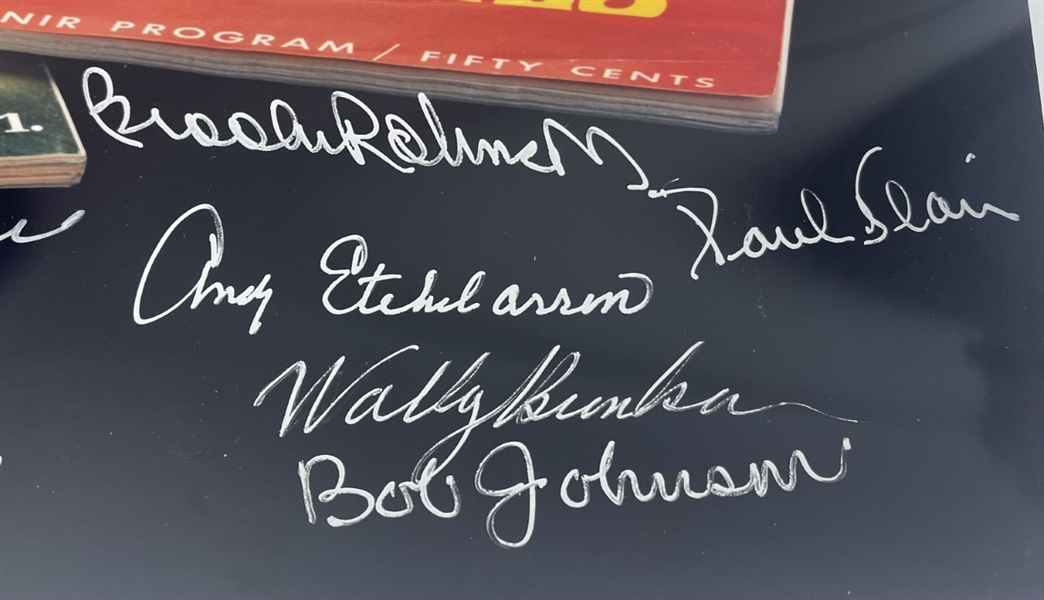 NIR PROGRAM / FIFTY CENTS
1.
Brooks Robinson
Paul Blair
Andy Etchebarren
Wally Bunker
Bob Johnson